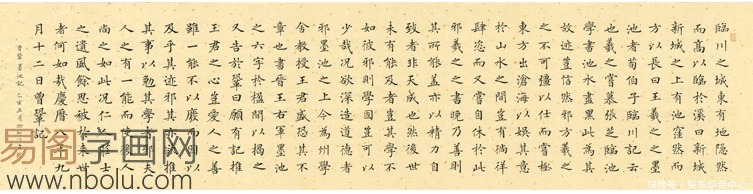 臨川之城東有地隱然
而高以臨於溪曰新城
新城之上有池窪然而
方以長曰王羲之之墨
池者荀伯子臨川記云
也羲之嘗慕張芝臨池
學書池水盡黑此為其
故迹豈信然邪方羲之
之不可彊以仕而嘗極
東方出滄海以娛其意
於山水之間豈有徜徉
肆恣而又嘗自休於此
邪羲之之書晚乃善則
其所能蓋亦以精力自
致者非天成也然後世
未有能及者豈其學不
如彼邪則學固豈可以
少哉況欲深造道德者
邪墨池之上今為州學
舍教授王君盛恐其不
章也書晉王右軍墨池
之六字於楹間以揭之
又告於鞏曰願有記推
王君之心豈愛人之善
雖一能不以廢而因以
及乎其迹邪其亦欲推
其事以勉其學者邪夫
人之有一能而使後人
尚之如此況仁人莊士
之遺風餘思被於來世
者何如哉慶曆八年九
月十二日曾鞏記
曾鞏墨池記 乙亥五月
易閣字画网
www.nbolu.com